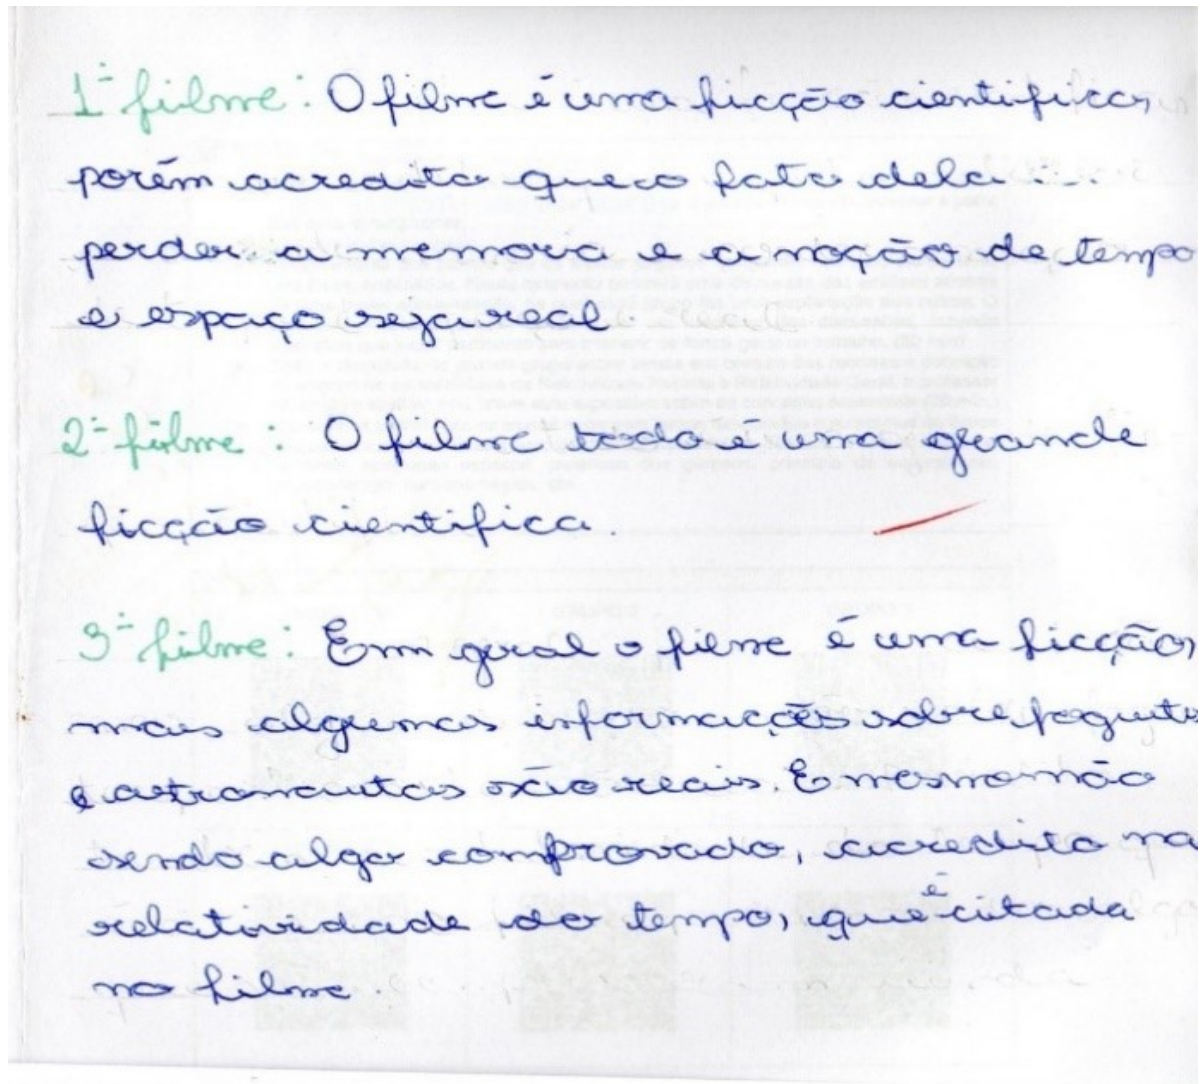 1º filme: O filme é uma ficção cientifica,
porém acredito que o fato dela
perder a memoria e a noção de tempo
e espaço seja real
2º filme: O filme todo é uma grande
ficção cientifica.
3º filme: Em geral o filme é uma ficção,
mais algumas informações sobre foguete
e astronautas são reais. E mesmo não
sendo algo comprovado, acredito na
relatividade do tempo, que é citada
no filme.